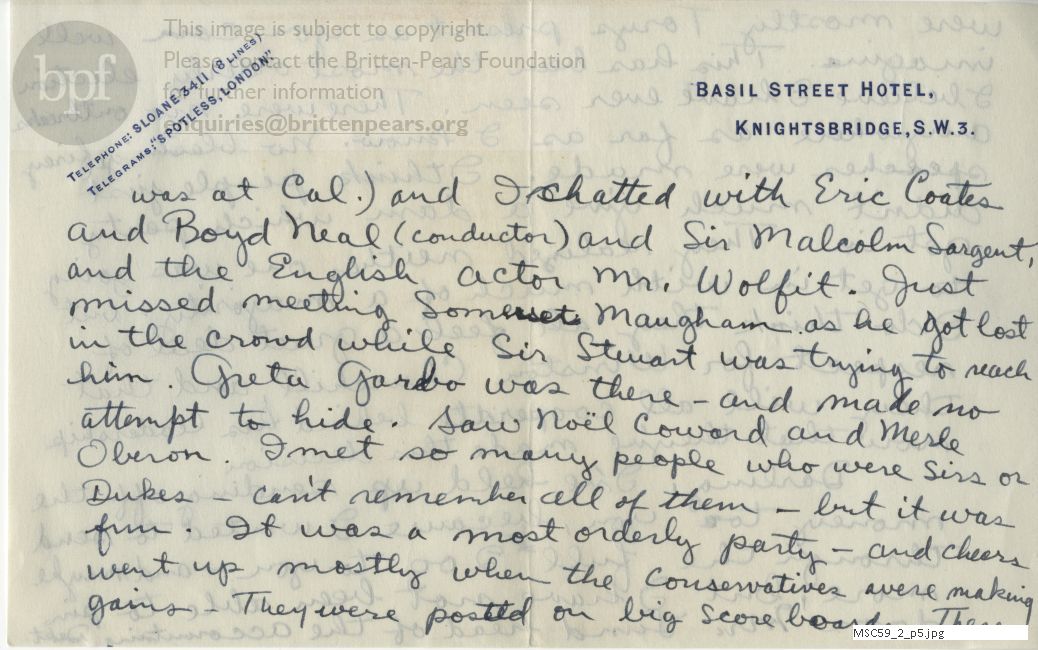 bpf
This image is subject to copyright.
Please contact the Britten-Pears Foundation
for further information
enquiries@brittenpears.org
TELEPHONE: SLOANE 3411 (8 LINES)
TELEGRAMS: "SPOTLESS, LONDON"
BASIL STREET HOTEL,
KNIGHTSBRIDGE, S.W.3.
was at Cal.) and I chatted with Eric Coates
and Boyd Neal (conductor) and Sir Malcolm Sargent,
and the English actor Mr. Wolfit. Just
missed meeting Somerset Maugham as he got lost
in the crowd while Sir Stewart was trying to reach
him. Greta Garbo was there – and made no
attempt to hide. Saw Noël Coward and Merle
Oberon. I met so many people who were Sirs or
Dukes – can't remember all of them – but it was
fun. It was a most orderly party – and cheers
went up mostly when the Conservatives were making
gains. They were posted on big score board. The
MSC59_2_p5.jpg